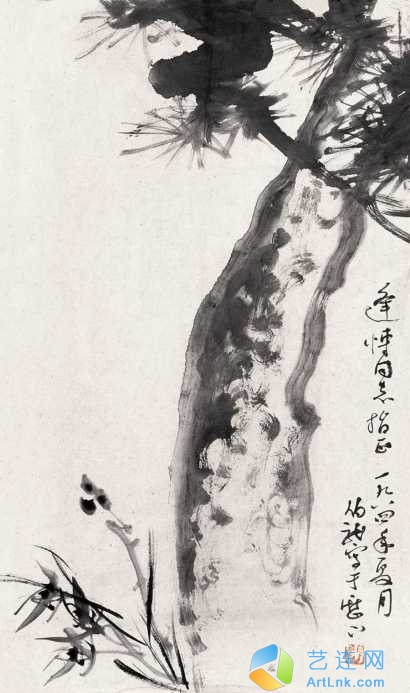 逢博同志指正 一九八四年夏月
伯誠写于歷下
艺连网
ArtLnk.com